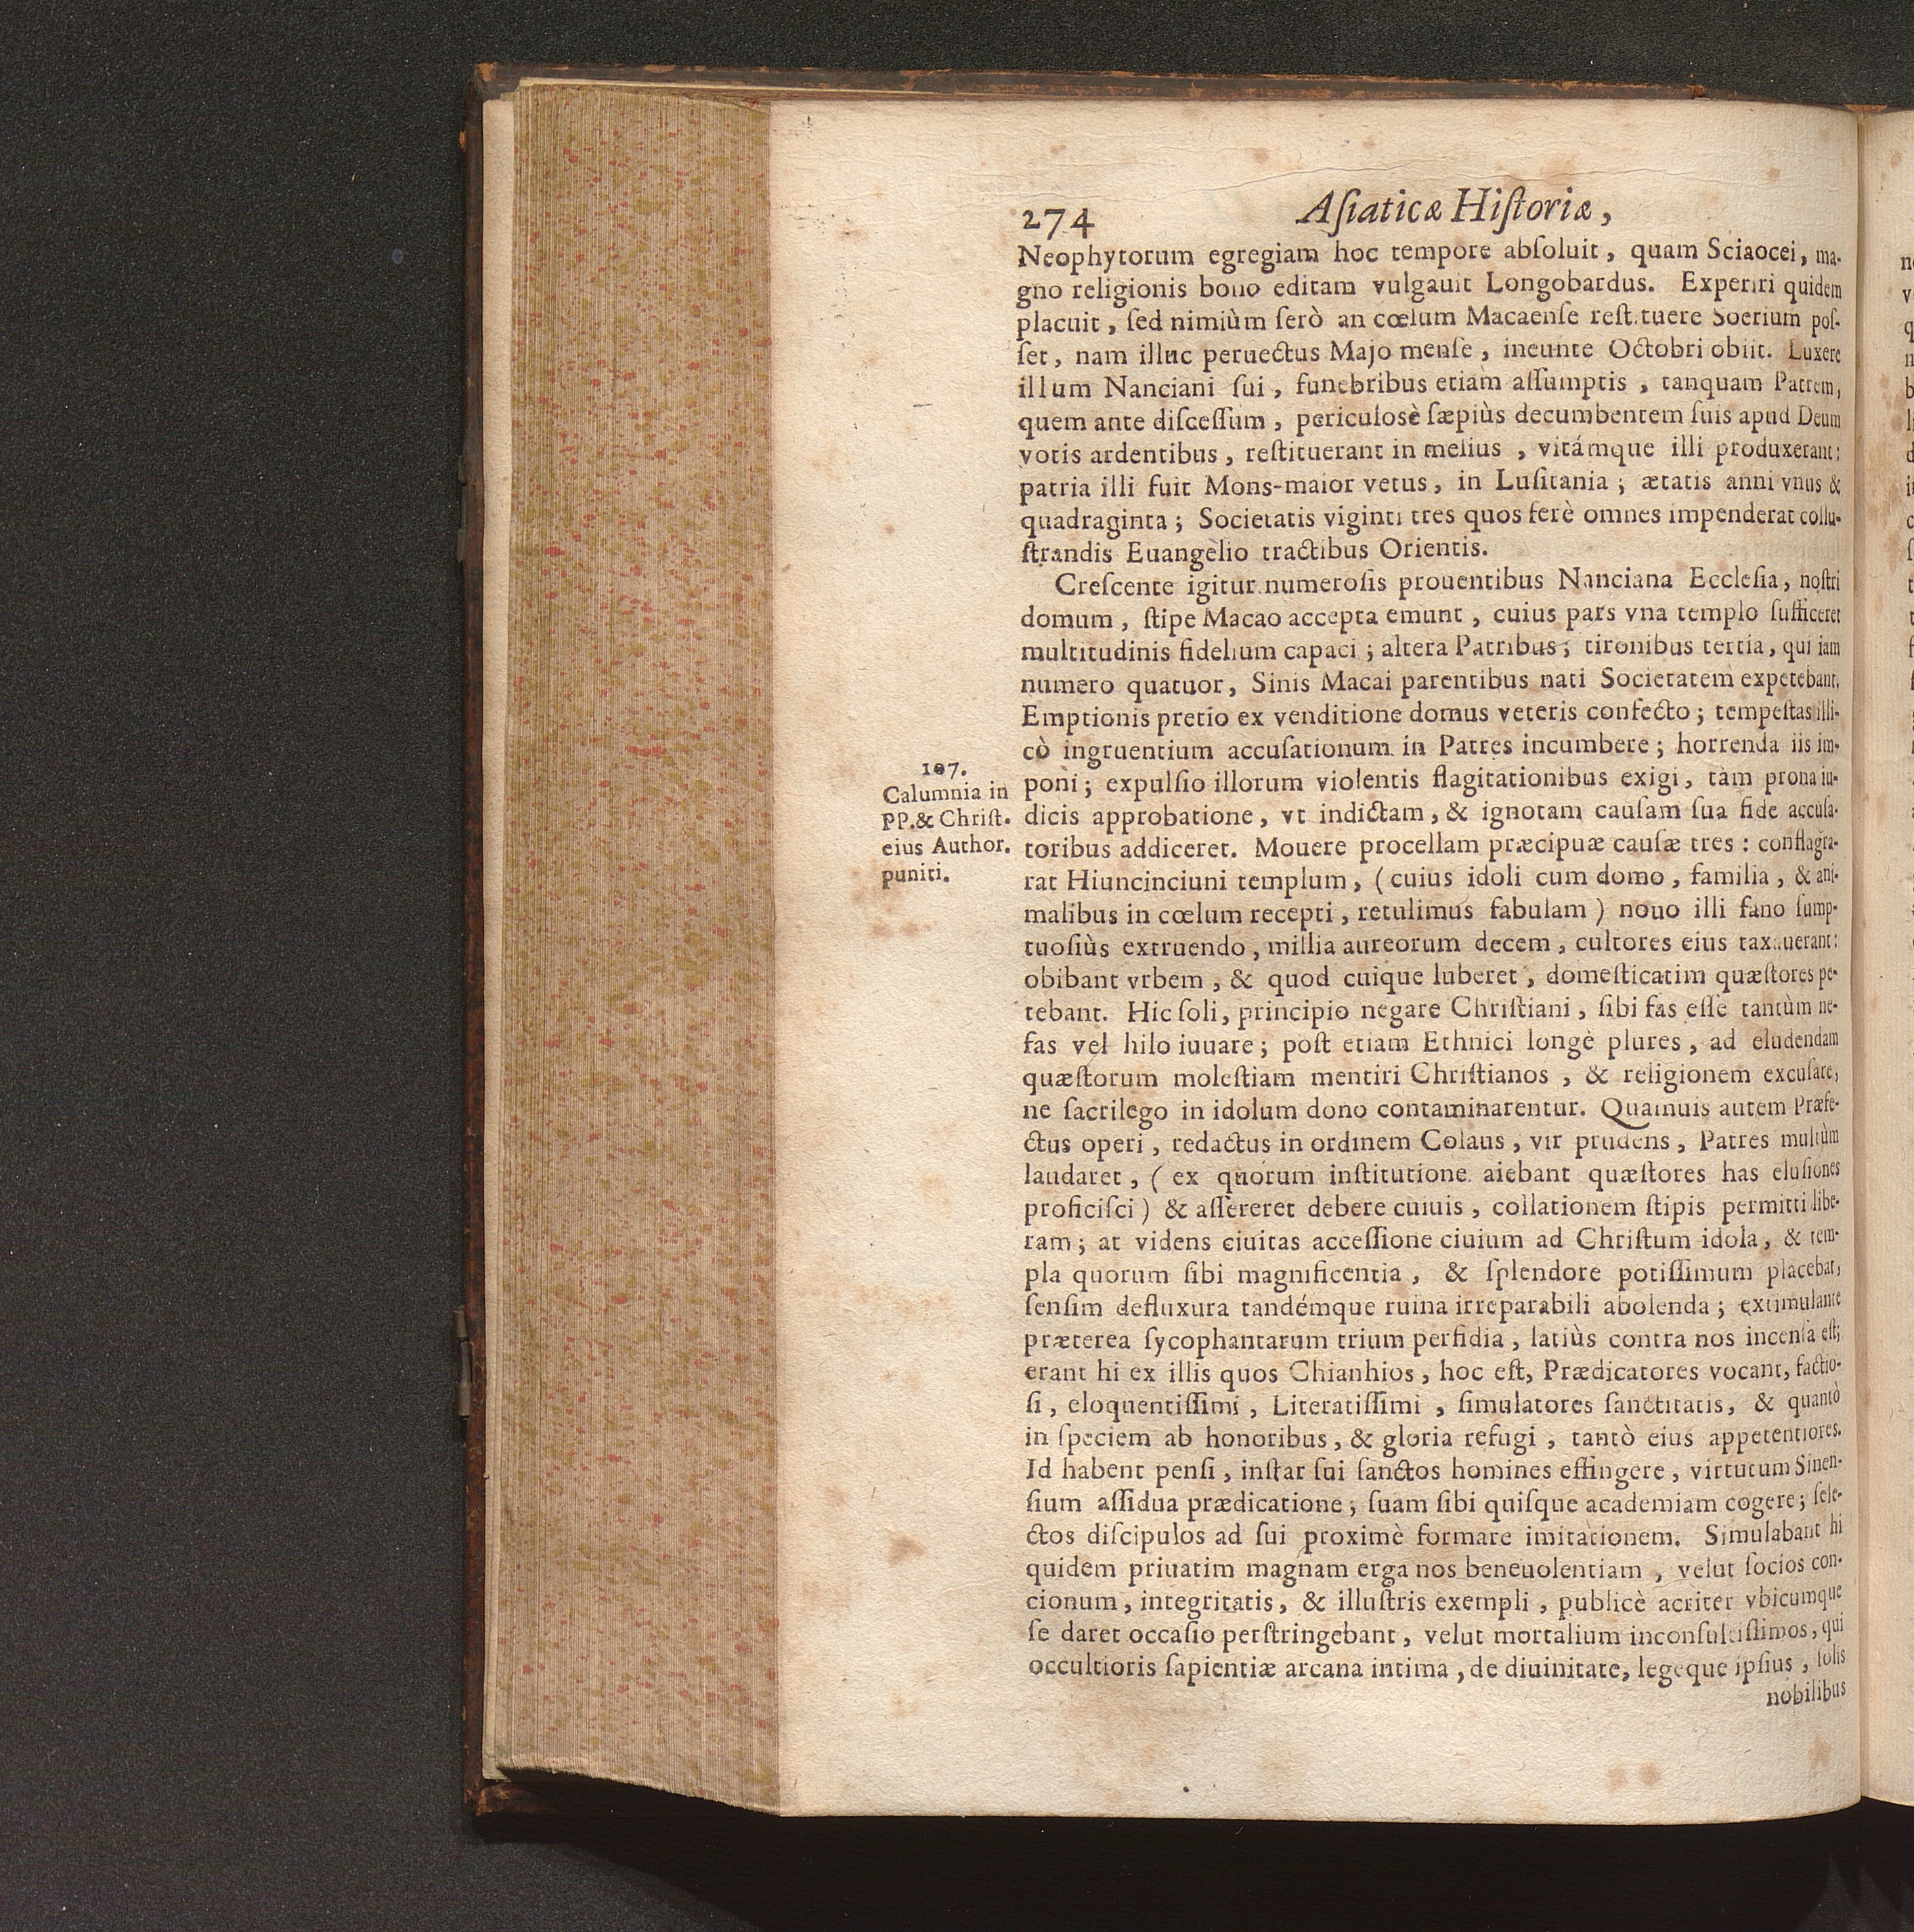 274 Aſiaticæ Hiſtoriæ,
Neophytorum egregiam hoc tempore abſoluit, quam Sciaocei, ma-
gno religionis bono editam vulgauit Longobardus. Experiri quidem
placuit, ſed nimiùm ſerò an cœlum Macaenſe reſtituere Soerium poſ-
ſet, nam illuc peruectus Majo menſe, ineunte Octobri obiit. Luxere
illum Nanciani ſui, funebribus etiam aſſumptis, tanquam Patrem,
quem ante diſceſſum, periculosè ſæpiùs decumbentem ſuis apud Deum
votis ardentibus, reſtituerant in melius, vitámque illi produxerant:
patria illi fuit Mons-maior vetus, in Luſitania; ætatis anni vnus &
quadraginta; Societatis viginti tres quos ferè omnes impenderat collu-
ſtrandis Euangelio tractibus Orientis.
Creſcente igitur numeroſis prouentibus Nanciana Eccleſia, noſtri
domum, ſtipe Macao accepta emunt, cuius pars vna templo ſufficeret
multitudinis fidelium capaci; altera Patribus; tironibus tertia, qui iam
numero quatuor, Sinis Macai parentibus nati Societatem expetebant,
Emptionis pretio ex venditione domus veteris confecto; tempeſtas illi-
cò ingruentium accuſationum in Patres incumbere; horrenda iis im-
poni; expulſio illorum violentis flagitationibus exigi, tàm prona iu-
dicis approbatione, vt indictam, & ignotam cauſam ſua fide accuſa-
toribus addiceret. Mouere procellam præcipuæ cauſæ tres: conflagra-
rat Hiuncinciuni templum, (cuius idoli cum domo, familia, & ani-
malibus in cœlum recepti, retulimus fabulam) nouo illi fano ſump-
tuoſiùs extruendo, millia aureorum decem, cultores eius taxauerant:
obibant vrbem, & quod cuique luberet, domeſticatim quæſtores pe-
tebant. Hic ſoli, principio negare Chriſtiani, ſibi fas eſſe tantùm ne-
fas vel hilo iuuare; poſt etiam Ethnici longè plures, ad eludendam
quæſtorum moleſtiam mentiri Chriſtianos, & religionem excuſare,
ne ſacrilego in idolum dono contaminarentur. Quamuis autem Præfe-
ctus operi, redactus in ordinem Colaus, vir prudens, Patres multùm
laudaret, (ex quorum inſtitutione aiebant quæſtores has eluſiones
proficiſci) & aſſereret debere cuiuis, collationem ſtipis permitti libe-
ram; at videns ciuitas acceſſione ciuium ad Chriſtum idola, & tem-
pla quorum ſibi magnificentia, & ſplendore potiſſimum placebat,
ſenſim defluxura tandémque ruina irreparabili abolenda; extimulante
præterea ſycophantarum trium perfidia, latiùs contra nos incenſa eſt;
erant hi ex illis quos Chianhios, hoc eſt, Prædicatores vocant, factio-
ſi, eloquentiſſimi, Literatiſſimi, ſimulatores ſanctitatis, & quantò
in ſpeciem ab honoribus, & gloria refugi, tantò eius appetentiores.
Id habent penſi, inſtar ſui ſanctos homines effingere, virtutum Sinen-
ſium aſſidua prædicatione; ſuam ſibi quiſque academiam cogere; ſele-
ctos diſcipulos ad ſui proximè formare imitationem. Simulabant hi
quidem priuatim magnam erga nos beneuolentiam, velut ſocios con-
cionum, integritatis, & illuſtris exempli, publicè acriter vbicumque
ſe daret occaſio perſtringebant, velut mortalium inconſultiſſimos, qui
occultioris ſapientiæ arcana intima, de diuinitate, legeque ipſius, ſolis
nobilibus
107.
Calumnia in
PP. & Chriſt.
eius Author.
puniti.